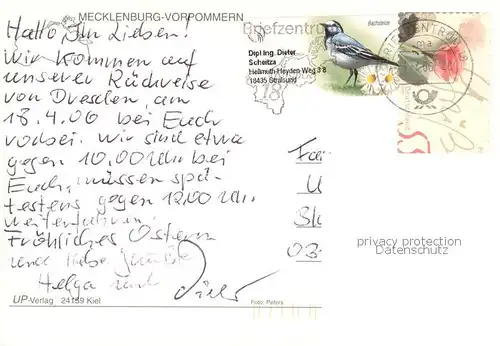 MECKLENBURG-VORPOMMERN
Hallo Ihr Lieben!
Wir kommen auf
unserer Rückreise
von Dresden, am
18.4.06 bei Euch
vorbei. Wir sind etwa
gegen 10.00 Uhr bei
Euch, müssen spä-
testens gegen 12.00 Uhr
weiterfahren.
Fröhliches Ostern
und liebe Grüße
Helga und Dieter
UP-Verlag 24159 Kiel
Foto: Peters
Briefzentrum
18
Dipl Ing. Dieter
Scheitza
Hellmuth-Heyden-Weg 3 8
18435 Stralsund
Bachstelze
BRIEFZENTRUM 18
privacy protection
Datenschutz